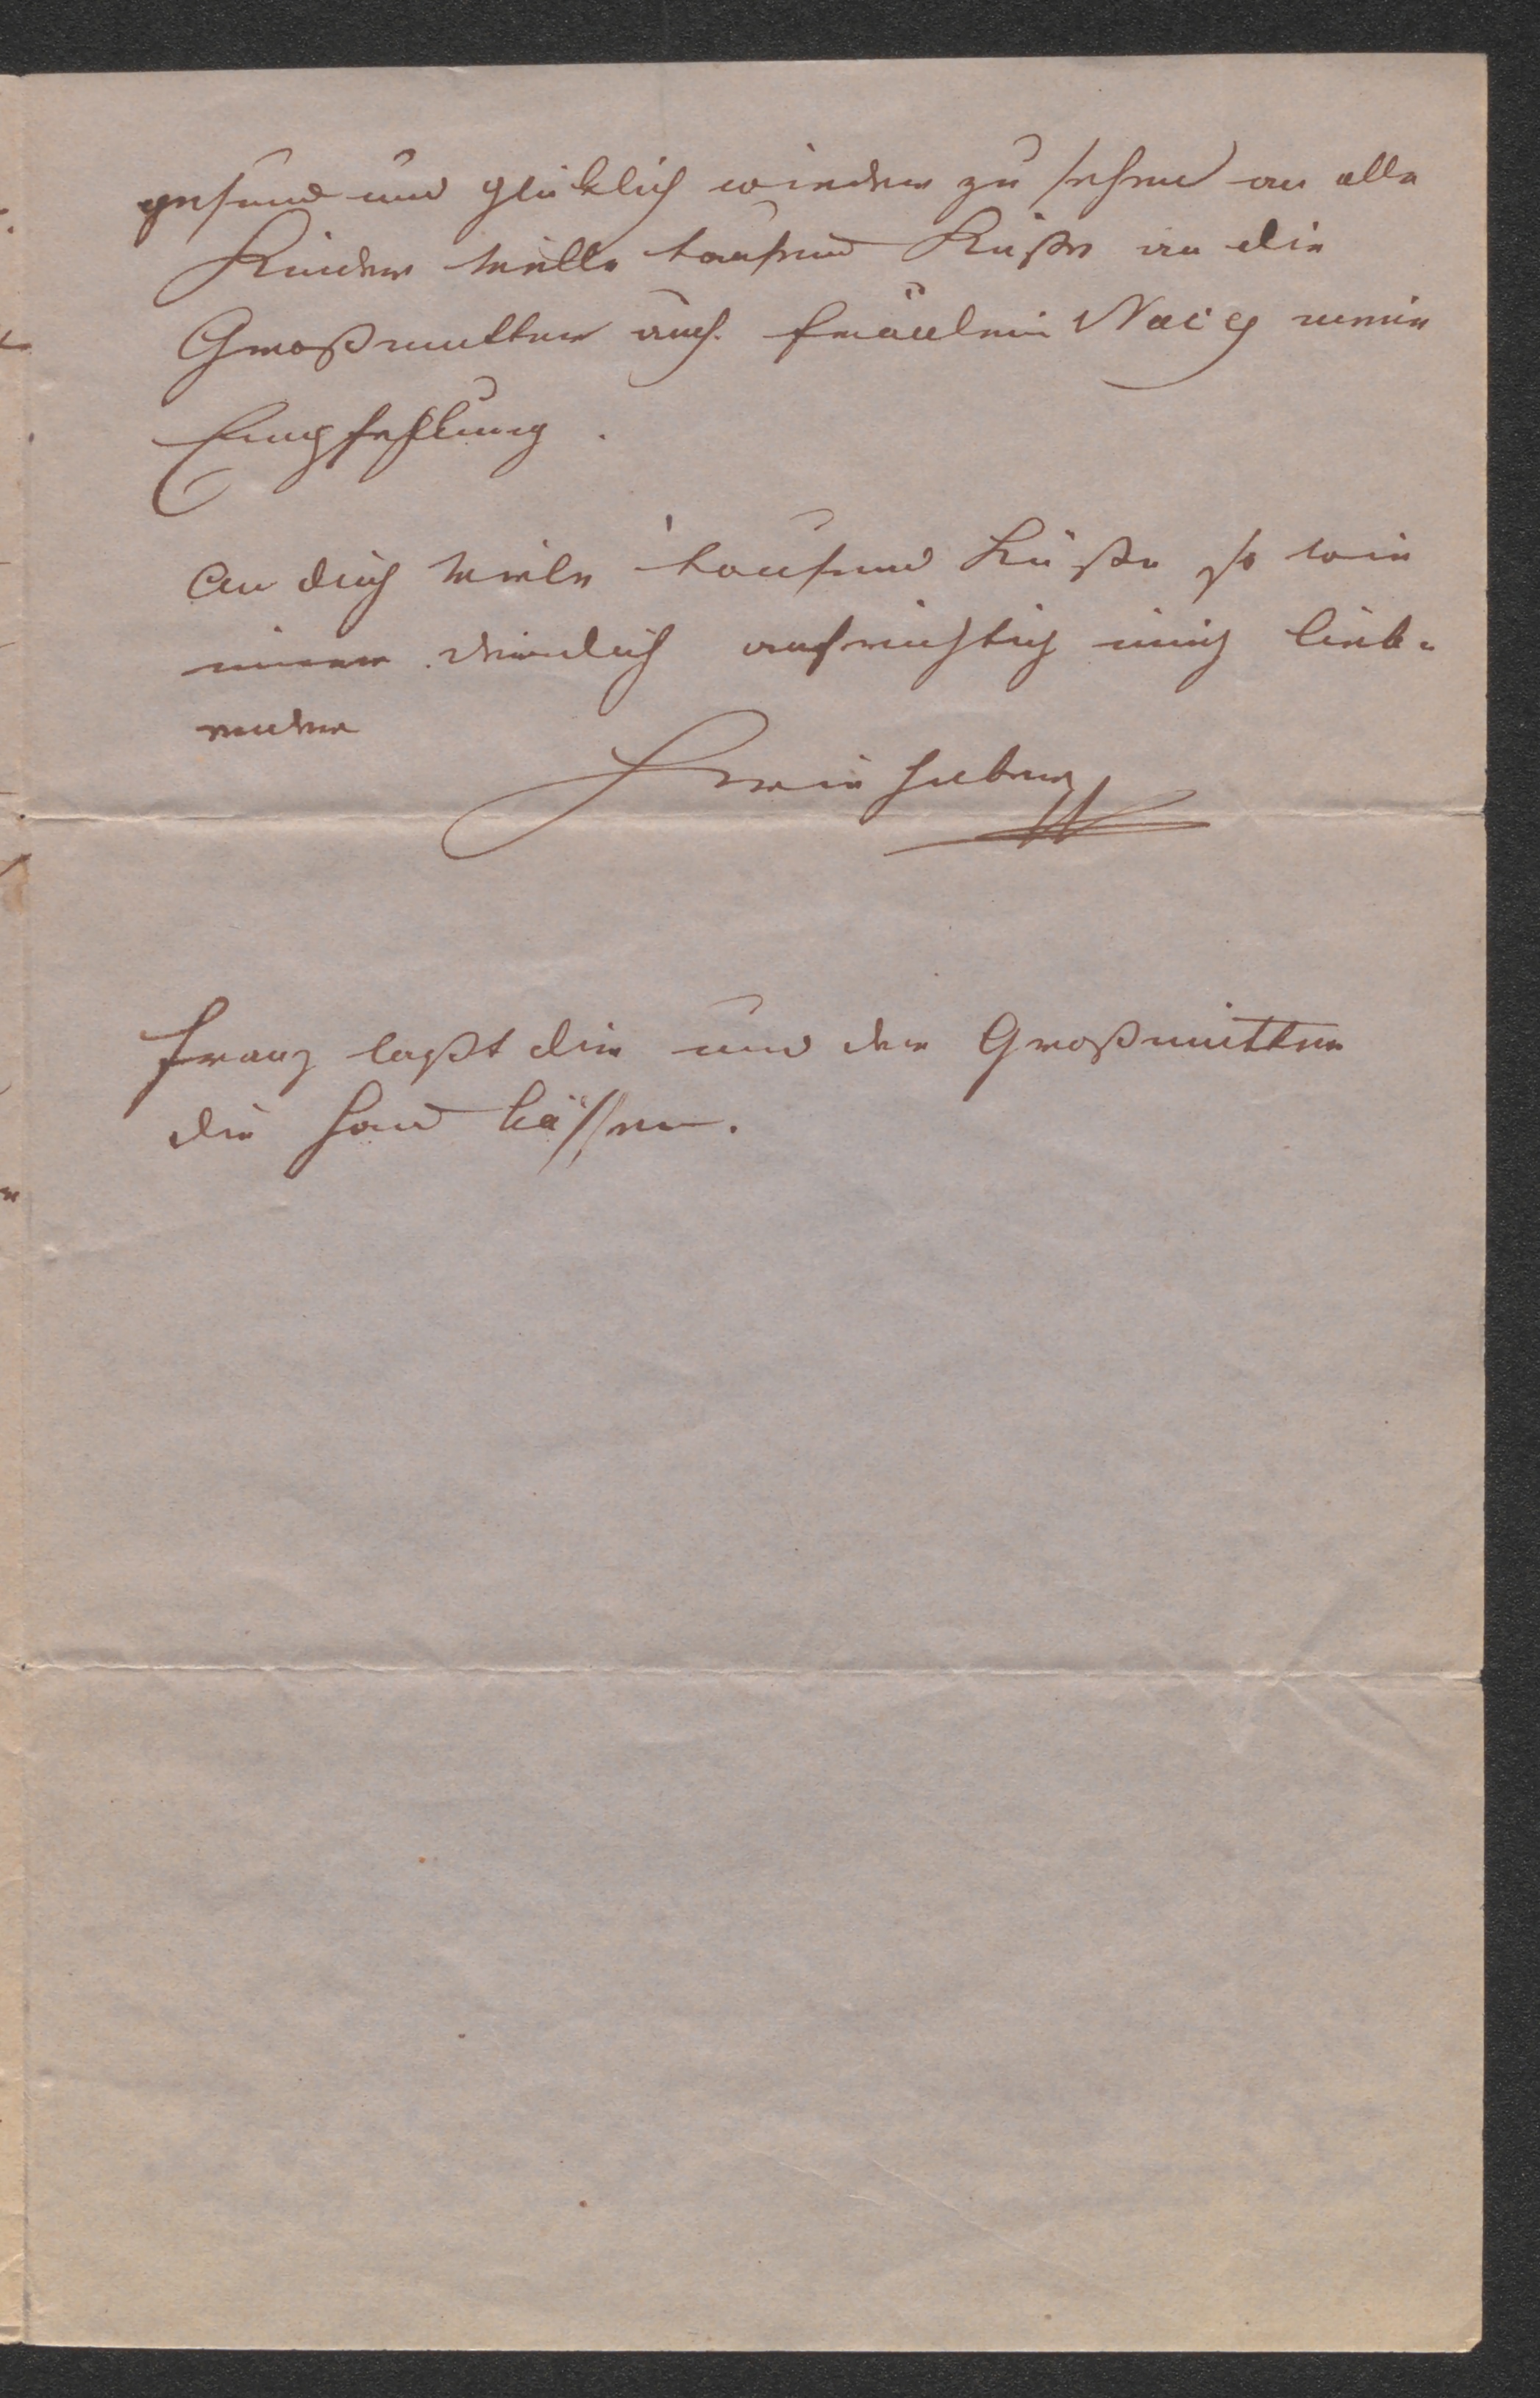 gesund und glüklich wieder zu sehen an alle
Kinder vielle tausend Küße an die
Großmutter auch fräulein Nacy meine
Empfehlung.
An dich viele tausend Küße so wie
immer dein dich aufrichtig innig lieb-
ender
franz laßt dir und der Großmutter
die Hand küssen.